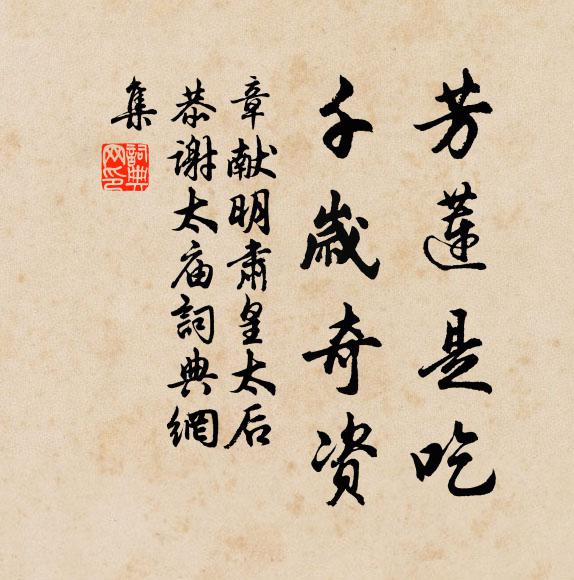 芳莲是吃
千歲奇资
章献明肅皇太后
恭谢太庙詞典網
集
詞典
网印